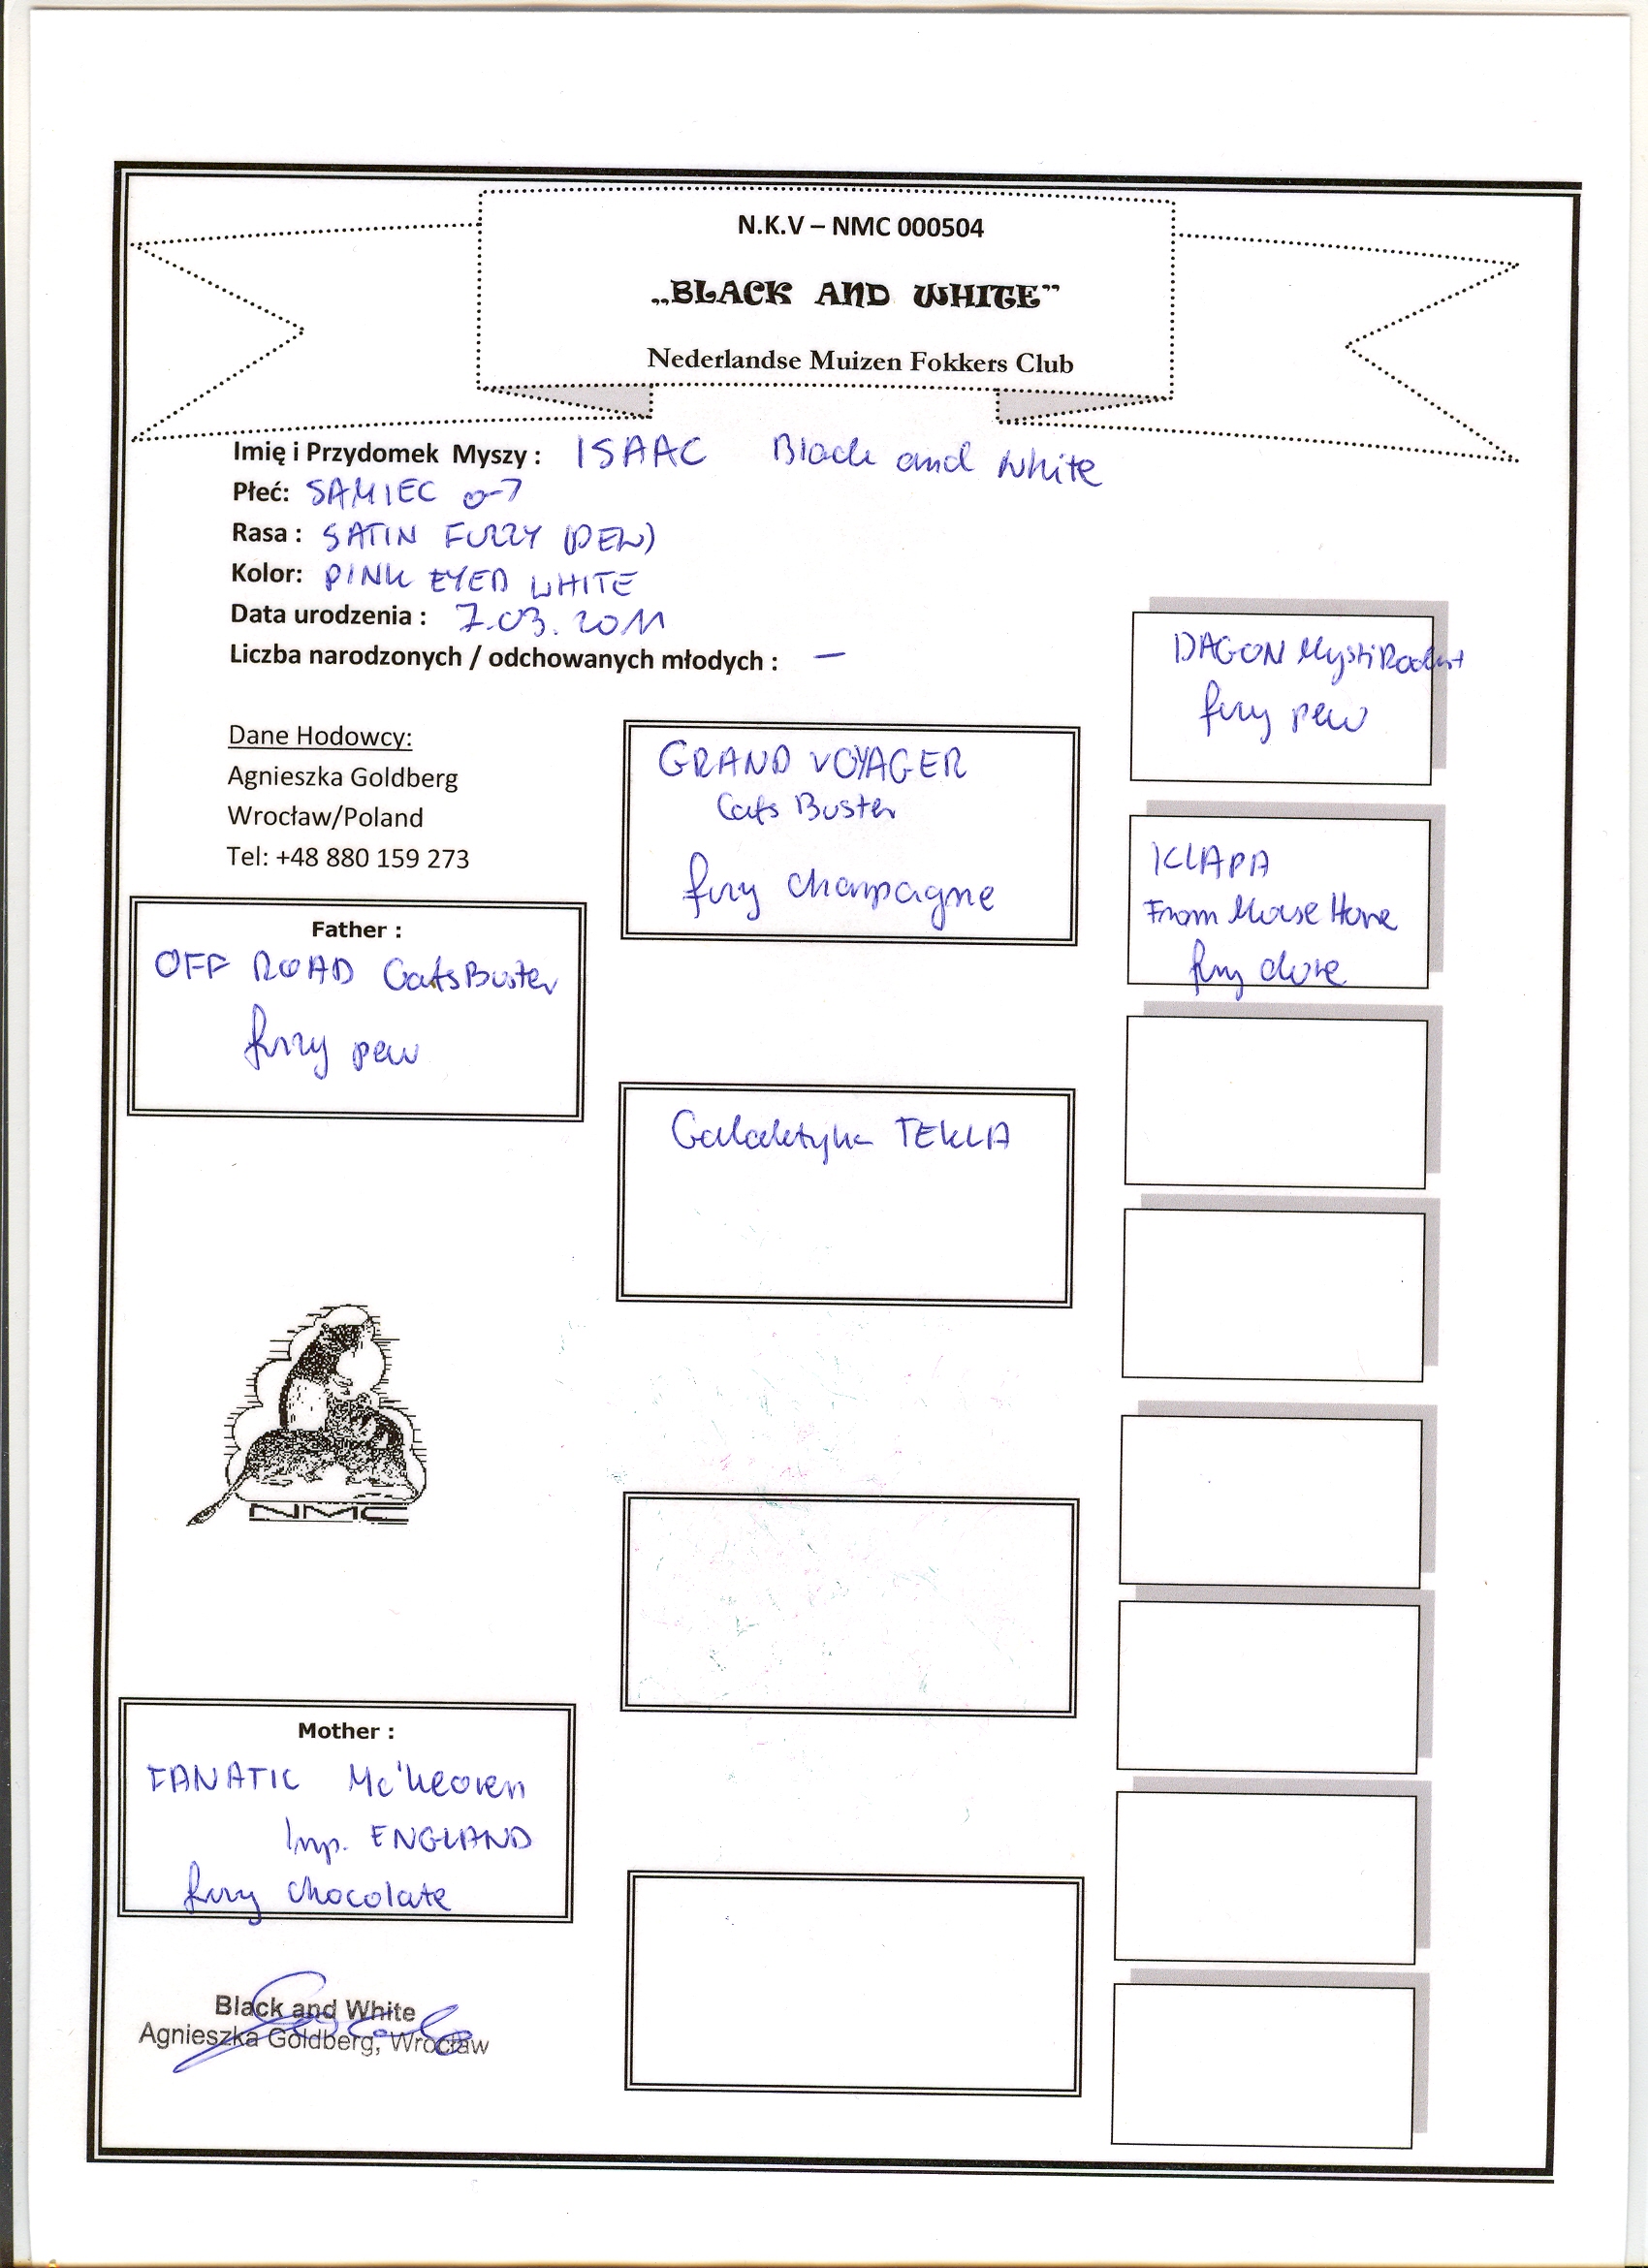 N.K.V – NMC 000504
„BLACK AND WHITE”
Nederlandse Muizen Fokkers Club
Imię i Przydomek Myszy : ISAAC Black and White
Płeć: SAMIEC
Rasa : SATIN FUZZY (PEW)
Kolor: PINK EYED WHITE
Data urodzenia : 7.03.2011
Liczba narodzonych / odchowanych młodych : —
Dane Hodowcy:
Agnieszka Goldberg
Wrocław/Poland
Tel: +48 880 159 273
Father :
OFF ROAD CatsBuster
fuzzy pew
GRAND VOYAGER
Cats Buster
fuzzy champagne
Galaktyka TEKLA
DAGON MystiRodent
fuzzy pew
KLAPA
From Mouse Hove
fuzzy dove
NMC
Mother :
FANATIC
Imp. ENGLAND
fuzzy chocolate
Black and White
Agnieszka Goldberg, Wrocław